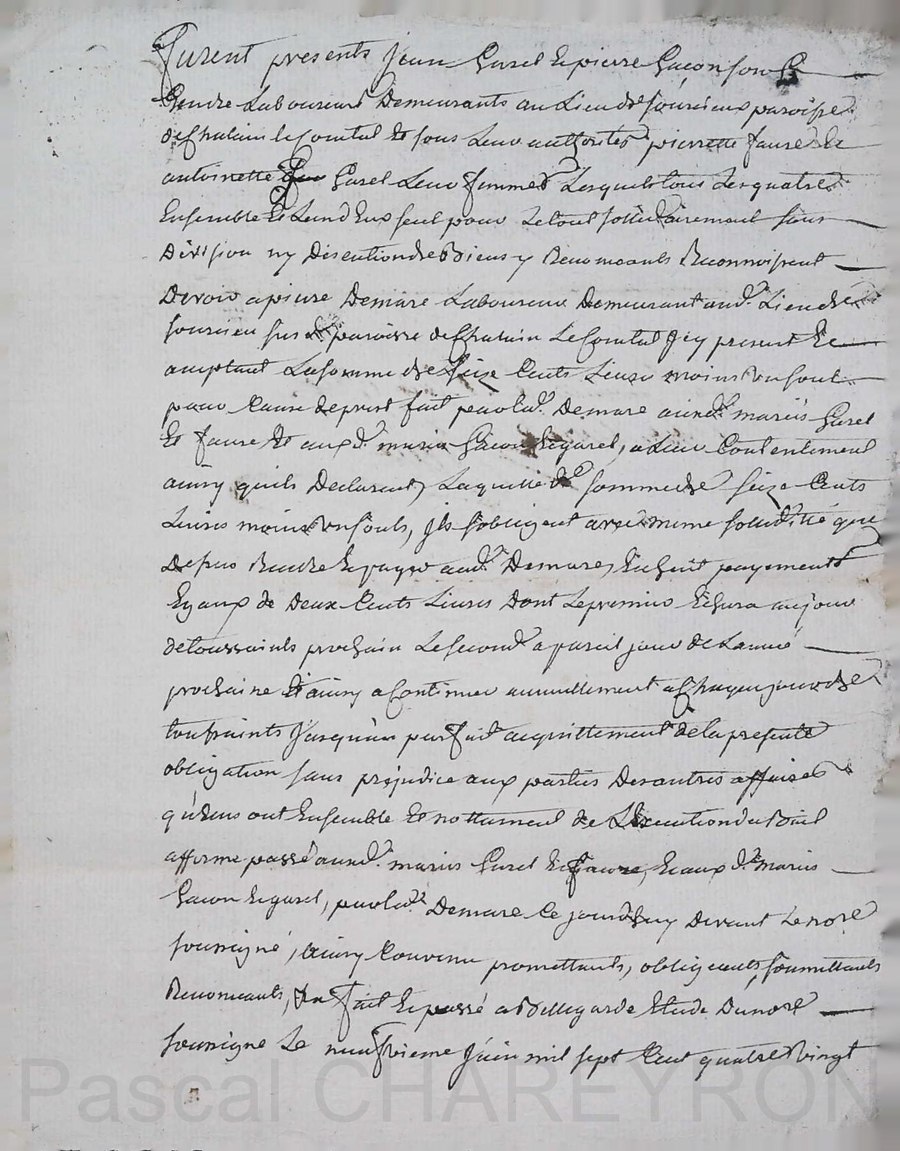 furent presents Jean Garel & pierre Gacon son
Gendre Laboureurs Demeurants au Lieu de sourcieux paroisse
de Chalain le Comtal & sous Leur authorités pierrette faure &
antoinette Garel Leur femmes Lesquels tous Les quatre
Ensemble & Lun d'Eux seul pour Le tout solidairement sans
Division ny Discution de Biens y Renonceants Reconnoissent
Devoir a pierre Demare Laboureur Demeurant aud.t Lieu de
sourcieu sus d. paroisse de Chalain Le Comtal Icy present &
acceptant La somme de seize Cents Livres moins un soul
pour Cause de prest fait par led.t Demare auxd.ts mariés Garel
& faure & auxd.ts mariés Gacon & garel, a Leur Contentement
ainsy quils Declarent, Laquelle d.e somme de seize Cents
Livres moins un souls, Ils sobligent avec meme solidité que
Dessus Rendre & payer aud.t Demare, En huit payements
Egaux de Deux Cents Livres Dont Le premier Echera au jour
de toussaints prochain Le second a pareil jour de Lannée
prochaine & ainsy a Continuer annuellement a Chaque jour de
toussaints Jusqu'au parfait acquittement de la presente
obligation sans préjudice aux parties Des autres affaires
qu'Elles ont Ensemble & nottament de L'Execution du Bail
afferme passé auxd.ts mariés Garel & faure, & aux d.ts mariés
Gacon & garel, par led.t Demare Ce jourdhuy Devant Le nore
soussigné, ainsy Convenu promettants, obligeants, soumettants
Renonceants, fait & passé a Bellegarde Etude Du nore
soussigné Le neufvieme Juin mil sept Cent quatre Vingt
Pascal CHAREYRON